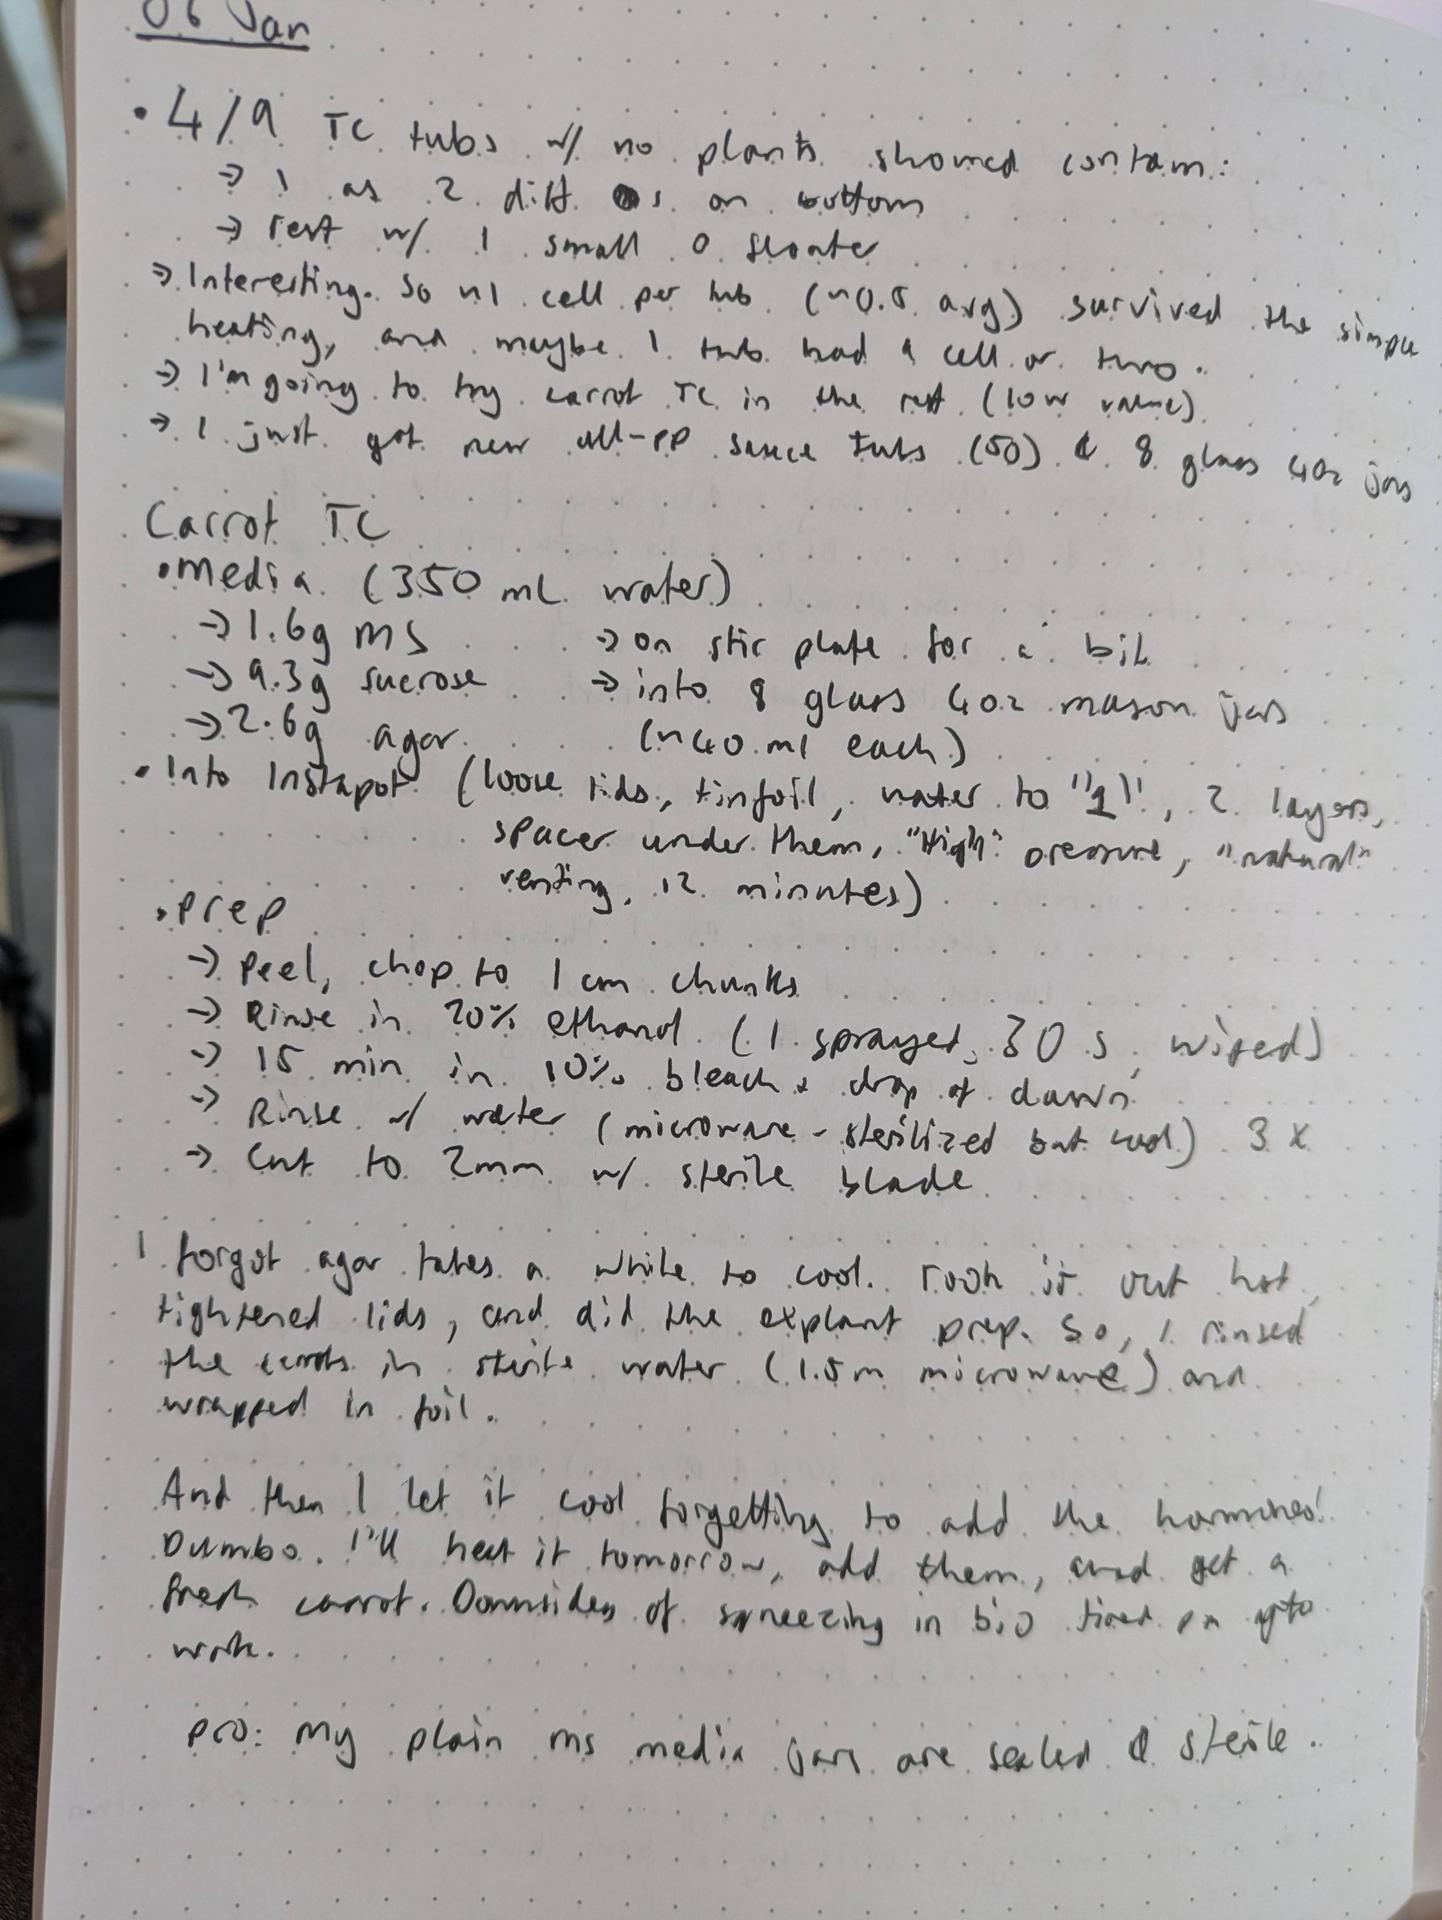 06 Jan
• 4/9 TC tubs w/ no plants showed contam:
→ 1 as 2 diff s on bottom
→ rest w/ 1 small o floater
→ Interesting. So ~1 cell per tub (~0.5 avg) survived the simple
heating, and maybe 1 tub had a cell or two.
→ I'm going to try carrot TC in the rest (low value)
→ I just got new all-PP sauce tubs (50) & 8 glass 4oz jars
Carrot TC
• Media (350 mL water)
→ 1.6g MS → on stir plate for a bit
→ 9.3g sucrose → into 8 glass 4oz mason jars
→ 2.6g agar (~40 ml each)
• Into Instapot (loose lids, tinfoil, water to "1", 2 layers,
spacer under them, "High" pressure, "natural"
venting, 12 minutes)
• Prep
→ Peel, chop to 1 cm chunks
→ Rinse in 70% ethanol (I sprayed, 30 s, wiped)
→ 15 min in 10% bleach + drop of dawn
→ Rinse w/ water (microwave-sterilized but cool) 3x
→ Cut to 2mm w/ sterile blade
I forgot agar takes a while to cool. Took it out hot,
tightened lids, and did the explant prep. So, I rinsed
the carrots in sterile water (1.5m microwave) and
wrapped in foil.
And then I let it cool forgetting to add the hormones!
Dumbo. I'll heat it tomorrow, add them, and get a
fresh carrot. Downsides of squeezing in bio tired pm after
work.
pro: My plain MS media jars are sealed & sterile.